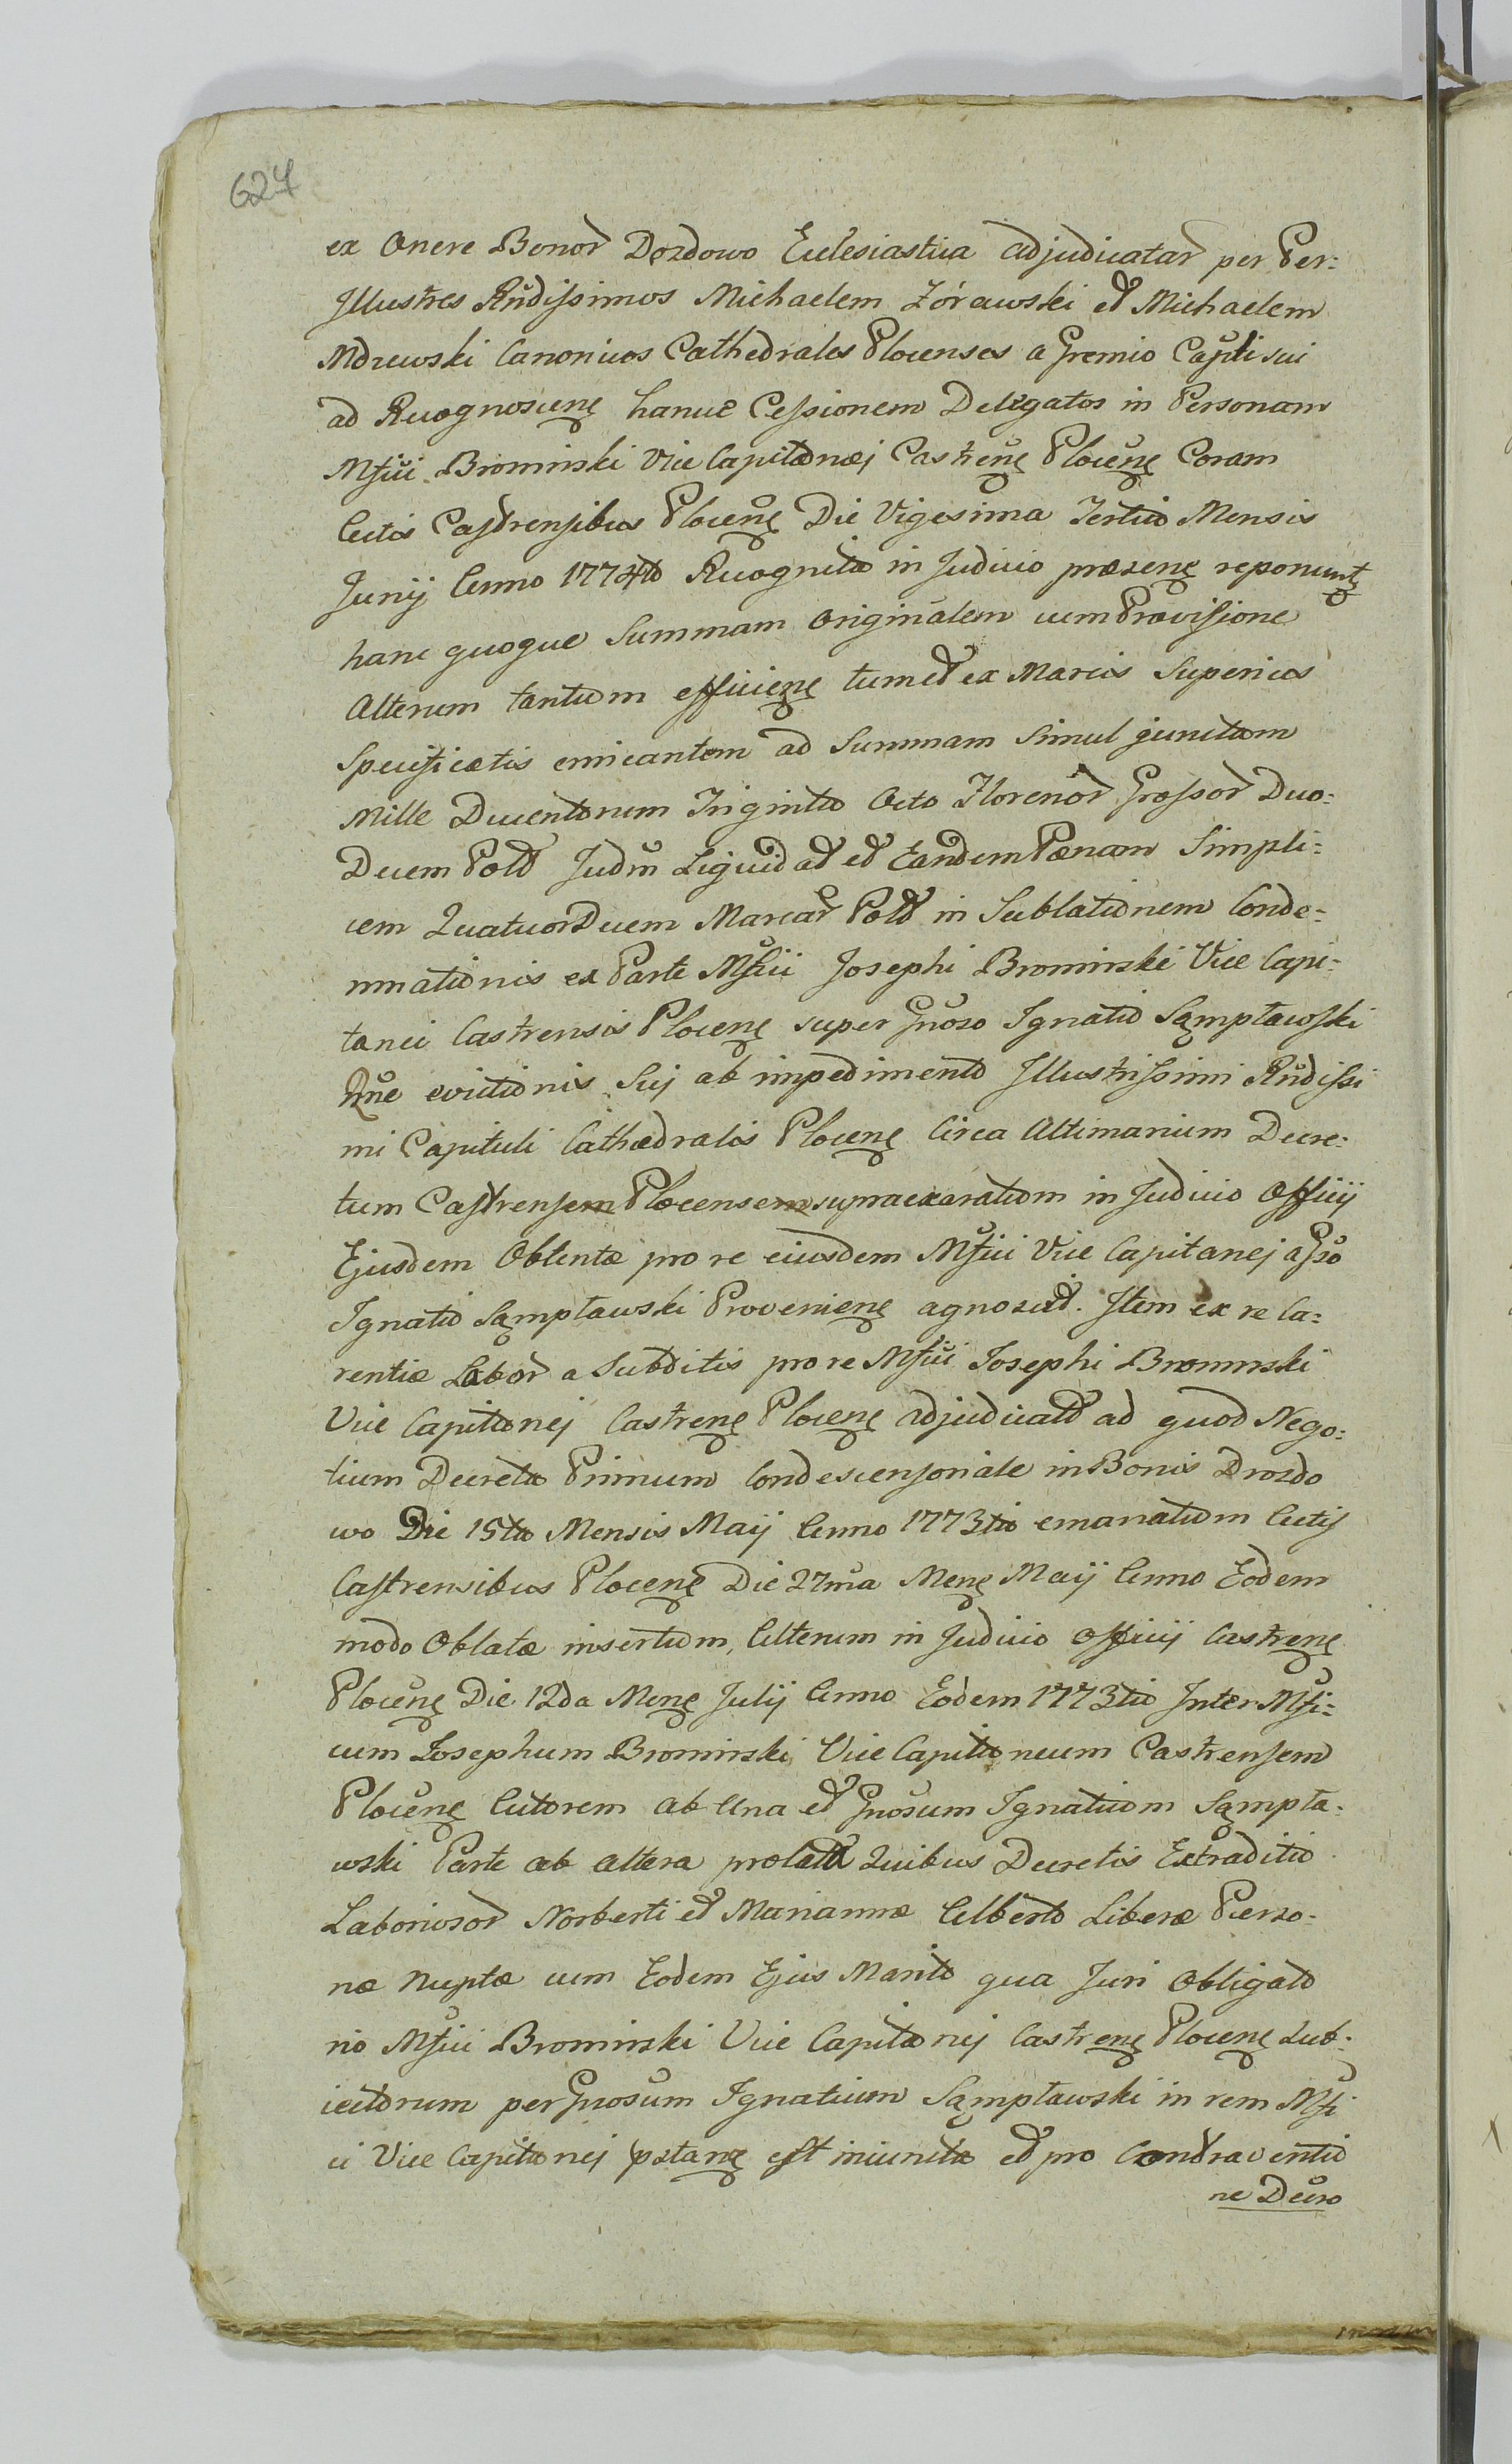 627
ex Onere Bonor Dozdowo Eclesiastica adjudicatar per Per:
Illustres Rndissimos Michaelem Zórawski et Michaelem
Mdzewski Canonicos Cathedrales Plocenses a Gremio Capli sui
ad Recognoscenę hance Cessionem Delegatos in Personam
Mfici Bromirski Vice Capitanej Castrenę Plocenę Coram
Actis Castrensibus Plocenę Die Vigesima Tertia Mensis
Junij Anno 1774to Recognita in Judicio præsenę reponunt
hanc quoque Summam Originalem cum Provisione
Alterum tantum efficienę tum et ex Marcis Superius
Specificatis emicantem ad Summam Simul junctam
Mille Ducentorum Triginta Octo Florenor Grossor Duo:
Decem Polt Judm Liquidat et Eandem Pænam Simpli:
cem Quatuor Decem Marcar Polt in Sublationem Conde:
mnationis ex Parte Mfici Josephi Bromirski Vice Capi:
tanei Castrensis Plocenę super Gnoso Ignatio Sąmpławski
Rne evictionis Suj ab impedimento Illustrissimi Rndissi
mi Capituli Cathædralis Plocenę Circa Altimarium Decre:
tum Castrensem Plocensem supra exaratum in Judicio Officij
Ejusdem Obtentæ pro re eiusdem Mfici Vice Capitanej a Gso
Ignatio Sąmpławski Provenienę agnoscit. Item ex re Ca:
rentiæ Labor a Subditis pro re Mfici Josephi Bromirski
Vice Capitanej Castrenę Plocenę adjudicatt ad quod Nego:
tium Decreta Primum Condescensoriale in Bonis Drozdo
wo Die 15ta Mensis Maij Anno 1773tio emanatum Actis
Castrensibus Plocenę Die 27ma Menę Maij Anno Eodem
modo Oblatæ insertum, Alterum in Judicio Officij Castrenę
Plocenę Die 12da Menę Julij Anno Eodem 1773tio Inter Mfi:
cum Josephum Bromirski Vice Capitaneum Castrensem
Plocenę Actorem ab Una et Gnosum Ignatium Sąmpła:
wski Parte ab altera prolatt Quibus Decretis Extraditio
Laboriosor Norberti et Mariannæ Alberto Liberæ Perso:
næ Nuptæ cum Eodem Ejus Marito qua Juri Obligato
rio Mfici Bromirski Vice Capitanej Castrenę Plocenę Sub:
iectorum per Gnosum Ignatium Sąmpławski in rem Mfi
ci Vice Capitanej pstanę est iniuncta et pro Contraventio
ne Decro